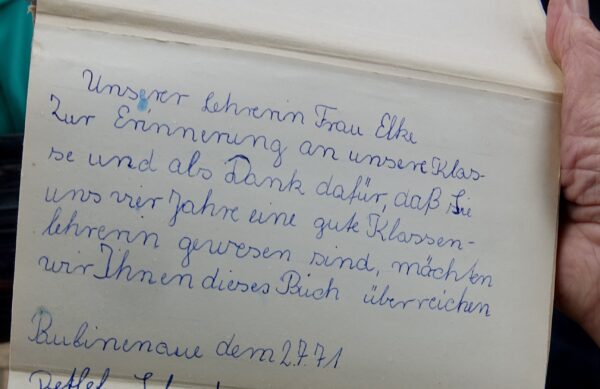 Unserer Lehrerin Frau Elke
Zur Erinnerung an unsere Klas-
se und als Dank dafür, daß Sie
uns vier Jahre eine gute Klassen-
lehrerin gewesen sind, möchten
wir Ihnen dieses Buch überreichen
Bubinenaue dem 2.7.71
Detlef